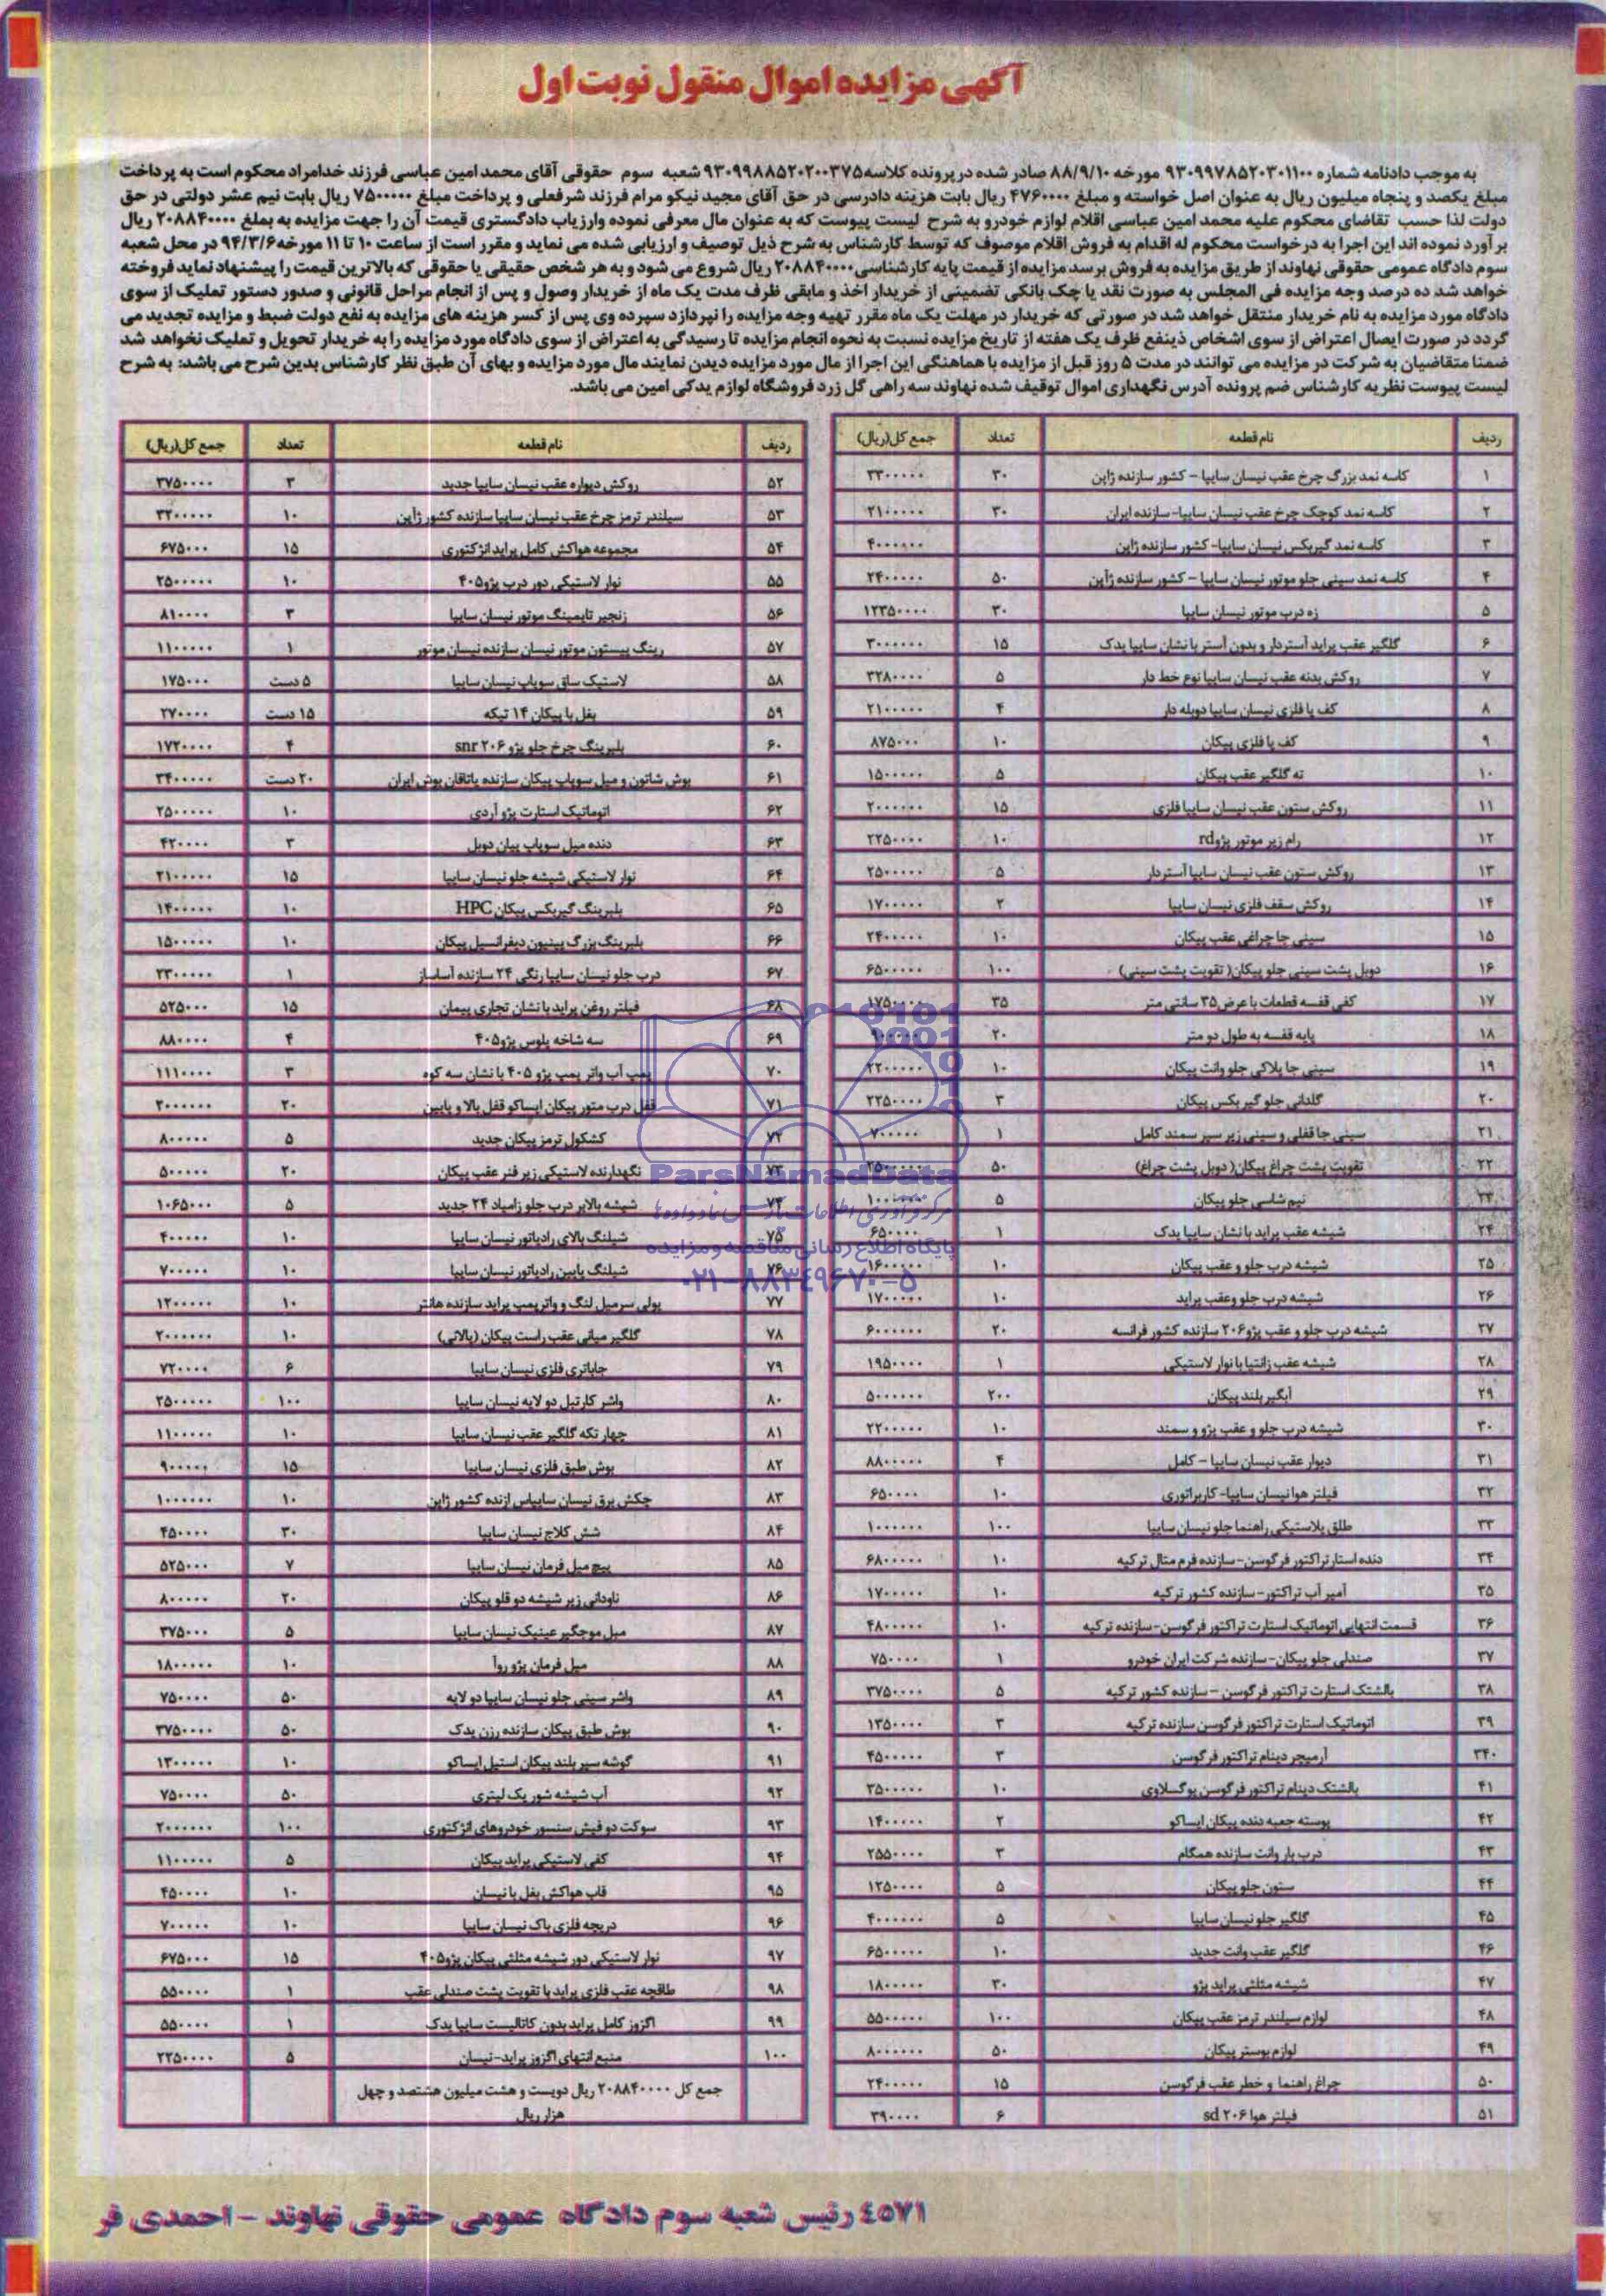 آگهی مزایده اموال منقول نوبت اول
به موجب دادنامه شماره ۹۳۰۹۹۷۸۵۲۰۳۰۱۱۰۰ مورخه ۸۸/۹/۱۰ صادر شده در پرونده کلاسه ۹۳۰۹۹۸۸۵۲۰۲۰۰۳۷۵ شعبه سوم حقوقی آقای محمد امین عباسی فرزند خدامراد محکوم است به پرداخت
مبلغ یکصد و پنجاه میلیون ریال به عنوان اصل خواسته و مبلغ ۴۷۶۰۰۰۰ ریال بابت هزینه دادرسی در حق آقای مجید نیکو مرام فرزند شرفعلی و پرداخت مبلغ ۷۵۰۰۰۰۰ ریال بابت نیم عشر دولتی در حق
دولت لذا حسب تقاضای محکوم علیه محمد امین عباسی اقلام لوازم خودرو به شرح لیست پیوست که به عنوان مال معرفی نموده وارزیاب دادگستری قیمت آن را جهت مزایده به بملغ ۲۰۸۸۴۰۰۰۰ ریال
برآورد نموده اند این اجرا به درخواست محکوم له اقدام به فروش اقلام موصوف که توسط کارشناس به شرح ذیل توصیف و ارزیابی شده می نماید و مقرر است از ساعت ۱۰ تا ۱۱ مورخه ۹۴/۳/۶ در محل شعبه
سوم دادگاه عمومی حقوقی نهاوند از طریق مزایده به فروش برسد مزایده از قیمت پایه کارشناسی ۲۰۸۸۴۰۰۰۰ ریال شروع می شود و به هر شخص حقیقی یا حقوقی که بالاترین قیمت را پیشنهاد نماید فروخته
خواهد شد ده درصد وجه مزایده فی المجلس به صورت نقد یا چک بانکی تضمینی از خریدار اخذ و مابقی ظرف مدت یک ماه از خریدار وصول و پس از انجام مراحل قانونی و صدور دستور تملیک از سوی
دادگاه مورد مزایده به نام خریدار منتقل خواهد شد در صورتی که خریدار در مهلت یک ماه مقرر تهیه وجه مزایده را نپردازد سپرده وی پس از کسر هزینه های مزایده به نفع دولت ضبط و مزایده تجدید می
گردد در صورت ایصال اعتراض از سوی اشخاص ذینفع ظرف یک هفته از تاریخ مزایده نسبت به نحوه انجام مزایده تا رسیدگی به اعتراض از سوی دادگاه مورد مزایده را به خریدار تحویل و تملیک نخواهد شد
ضمنا متقاضیان به شرکت در مزایده می توانند در مدت ۵ روز قبل از مزایده با هماهنگی این اجرا از مال مورد مزایده دیدن نمایند مال مورد مزایده و بهای آن طبق نظر کارشناس بدین شرح می باشد: به شرح
لیست پیوست نظریه کارشناس ضم پرونده آدرس نگهداری اموال توقیف شده نهاوند سه راهی گل زرد فروشگاه لوازم یدکی امین می باشد.
ردیف نام قطعه تعداد جمع کل(ریال)
۱ کاسه نمد بزرگ چرخ عقب نیسان سایپا – کشور سازنده ژاپن ۳۰ ۳۳۰۰۰۰۰
۲ کاسه نمد کوچک چرخ عقب نیسان سایپا- سازنده ایران ۳۰ ۲۱۰۰۰۰۰
۳ کاسه نمد گیربکس نیسان سایپا- کشور سازنده ژاپن ۴۰۰۰۰۰۰
۴ کاسه نمد سینی جلو موتور نیسان سایپا – کشور سازنده ژاپن ۵۰ ۲۴۰۰۰۰۰
۵ زه درب موتور نیسان سایپا ۳۰ ۱۲۳۵۰۰۰۰
۶ گلگیر عقب پراید آستردار و بدون آستر با نشان سایپا یدک ۱۵ ۳۰۰۰۰۰۰
۷ روکش بدنه عقب نیسان سایپا نوع خط دار ۵ ۳۲۸۰۰۰۰
۸ کف پا فلزی نیسان سایپا دوبله دار ۴ ۲۱۰۰۰۰۰
۹ کف پا فلزی پیکان ۱۰ ۸۷۵۰۰۰
۱۰ ته گلگیر عقب پیکان ۵ ۱۵۰۰۰۰۰
۱۱ روکش ستون عقب نیسان سایپا فلزی ۱۵ ۲۰۰۰۰۰۰
۱۲ رام زیر موتور پژو rd ۱۰ ۲۲۵۰۰۰۰
۱۳ روکش ستون عقب نیسان سایپا آستردار ۵ ۲۵۰۰۰۰۰
۱۴ روکش سقف فلزی نیسان سایپا ۲ ۱۷۰۰۰۰۰
۱۵ سینی جا چراغی عقب پیکان ۱۰ ۲۴۰۰۰۰۰
۱۶ دوبل پشت سینی جلو پیکان( تقویت پشت سینی) ۱۰۰ ۶۵۰۰۰۰۰
۱۷ کفی قفسه قطعات با عرض ۳۵ سانتی متر ۳۵ ۱۷۵۰۰۰۰
۱۸ پایه قفسه به طول دو متر ۲۰
۱۹ سینی جا پلاکی جلو وانت پیکان ۱۰ ۲۲۰۰۰۰۰
۲۰ گلدانی جلو گیربکس پیکان ۳ ۲۲۵۰۰۰۰
۲۱ سینی جا قفلی و سینی زیر سپر سمند کامل ۱ ۷۰۰۰۰۰
۲۲ تقویت پشت چراغ پیکان( دوبل پشت چراغ) ۵۰
۲۳ نیم شاسی جلو پیکان ۵ ۱۰۰۰۰۰۰
۲۴ شیشه عقب پراید با نشان سایپا یدک ۱ ۶۵۰۰۰۰
۲۵ شیشه درب جلو و عقب پیکان ۱۰ ۱۶۰۰۰۰۰
۲۶ شیشه درب جلو وعقب پراید ۱۰ ۱۷۰۰۰۰۰
۲۷ شیشه درب جلو و عقب پژو ۲۰۶ سازنده کشور فرانسه ۲۰ ۶۰۰۰۰۰۰
۲۸ شیشه عقب زانتیا با نوار لاستیکی ۱ ۱۹۵۰۰۰۰
۲۹ آبگیر بلند پیکان ۲۰۰ ۵۰۰۰۰۰۰
۳۰ شیشه درب جلو و عقب پژو و سمند ۱۰ ۲۲۰۰۰۰۰
۳۱ دیوار عقب نیسان سایپا – کامل ۴ ۸۸۰۰۰۰۰
۳۲ فیلتر هوا نیسان سایپا- کاربراتوری ۱۰ ۶۵۰۰۰۰
۳۳ طلق پلاستیکی راهنما جلو نیسان سایپا ۱۰۰ ۱۰۰۰۰۰۰
۳۴ دنده استار تراکتور فرگوسن- سازنده فرم متال ترکیه ۱۰ ۶۸۰۰۰۰۰
۳۵ آمپر آب تراکتور- سازنده کشور ترکیه ۱۰ ۱۷۰۰۰۰۰
۳۶ قسمت انتهایی اتوماتیک استارت تراکتور فرگوسن- سازنده ترکیه ۱۰ ۴۸۰۰۰۰۰
۳۷ صندلی جلو پیکان- سازنده شرکت ایران خودرو ۱ ۷۵۰۰۰۰
۳۸ بالشتک استارت تراکتور فرگوسن – سازنده کشور ترکیه ۵ ۳۷۵۰۰۰۰
۳۹ اتوماتیک استارت تراکتور فرگوسن سازنده ترکیه ۳ ۱۳۵۰۰۰۰
۳۴۰ آرمیچر دینام تراکتور فرگوسن ۳ ۴۵۰۰۰۰۰
۴۱ بالشتک دینام تراکتور فرگوسن یوگسلاوی ۱۰ ۳۵۰۰۰۰۰
۴۲ پوسته جعبه دنده پیکان ایساکو ۲ ۱۴۰۰۰۰۰
۴۳ درب بار وانت سازنده همگام ۳ ۲۵۵۰۰۰۰
۴۴ ستون جلو پیکان ۵ ۱۲۵۰۰۰۰
۴۵ گلگیر جلو نیسان سایپا ۵ ۴۰۰۰۰۰۰
۴۶ گلگیر عقب وانت جدید ۱۰ ۶۵۰۰۰۰۰
۴۷ شیشه مثلثی پراید پژو ۳۰ ۱۸۰۰۰۰۰
۴۸ لوازم سیلندر ترمز عقب پیکان ۱۰۰ ۵۵۰۰۰۰۰
۴۹ لوازم بوستر پیکان ۵۰ ۸۰۰۰۰۰۰
۵۰ چراغ راهنما و خطر عقب فرگوسن ۱۵ ۲۴۰۰۰۰۰
۵۱ فیلتر هوا ۲۰۶ sd ۶ ۳۹۰۰۰۰
ردیف نام قطعه تعداد جمع کل(ریال)
۵۲ روکش دیواره عقب نیسان سایپا جدید ۳ ۳۷۵۰۰۰۰
۵۳ سیلندر ترمز چرخ عقب نیسان سایپا سازنده کشور ژاپن ۱۰ ۳۲۰۰۰۰۰
۵۴ مجموعه هواکش کامل پراید انژکتوری ۱۵ ۶۷۵۰۰۰
۵۵ نوار لاستیکی دور درب پژو ۴۰۵ ۱۰ ۲۵۰۰۰۰۰
۵۶ زنجیر تایمینگ موتور نیسان سایپا ۳ ۸۱۰۰۰۰
۵۷ رینگ پیستون موتور نیسان سازنده نیسان موتور ۱ ۱۱۰۰۰۰۰
۵۸ لاستیک ساق سوپاپ نیسان سایپا ۵ دست ۱۷۵۰۰۰
۵۹ بغل یا پیکان ۱۴ تیکه ۱۵ دست ۲۷۰۰۰۰
۶۰ بلبرینگ چرخ جلو پژو ۲۰۶ snr ۴ ۱۷۲۰۰۰۰
۶۱ بوش شاتون و میل سوپاپ پیکان سازنده یاتاقان بوش ایران ۲۰ دست ۳۴۰۰۰۰۰
۶۲ اتوماتیک استارت پژو آردی ۱۰ ۲۵۰۰۰۰۰
۶۳ دنده میل سوپاپ پیان دوبل ۳ ۴۲۰۰۰۰
۶۴ نوار لاستیکی شیشه جلو نیسان سایپا ۱۵ ۲۱۰۰۰۰۰
۶۵ بلبرینگ گیربکس پیکان HPC ۱۰ ۱۴۰۰۰۰۰
۶۶ بلبرینگ بزرگ پینیون دیفرانسیل پیکان ۱۰ ۱۵۰۰۰۰۰
۶۷ درب جلو نیسان سایپا رنگی ۲۴ سازنده آساساز ۱ ۲۳۰۰۰۰۰
۶۸ فیلتر روغن پراید با نشان تجاری پیمان ۱۵ ۵۲۵۰۰۰
۶۹ سه شاخه پلوس پژو ۴۰۵ ۴ ۸۸۰۰۰۰
۷۰ پمپ آب واتر پمپ پژو ۴۰۵ با نشان سه کوه ۳ ۱۱۱۰۰۰۰
۷۱ قفل درب متور پیکان ایساکو قفل بالا و پایین ۲۰ ۲۰۰۰۰۰۰
۷۲ کشکول ترمز پیکان جدید ۵ ۸۰۰۰۰۰
۷۳ نگهدارنده لاستیکی زیر فنر عقب پیکان ۲۰ ۵۰۰۰۰۰
۷۴ شیشه بالابر درب جلو زامیاد ۲۴ جدید ۵ ۱۰۶۵۰۰۰
۷۵ شیلنگ بالای رادیاتور نیسان سایپا ۱۰ ۴۰۰۰۰۰
۷۶ شیلنگ پایین رادیاتور نیسان سایپا ۱۰ ۷۰۰۰۰۰
۷۷ پولی سرمیل لنگ و واترپمپ پراید سازنده هانتر ۱۰ ۱۲۰۰۰۰۰
۷۸ گلگیر میانی عقب راست پیکان (بالائی) ۱۰ ۲۰۰۰۰۰۰
۷۹ جاباتری فلزی نیسان سایپا ۶ ۷۲۰۰۰۰
۸۰ واشر کارتیل دو لایه نیسان سایپا ۱۰۰ ۲۵۰۰۰۰۰
۸۱ چهار تکه گلگیر عقب نیسان سایپا ۱۰ ۱۱۰۰۰۰۰
۸۲ بوش طبق فلزی نیسان سایپا ۱۵ ۹۰۰۰۰۰
۸۳ چکش برق نیسان سایپاس ازنده کشور ژاپن ۱۰ ۱۰۰۰۰۰۰
۸۴ شش کلاج نیسان سایپا ۳۰ ۴۵۰۰۰۰
۸۵ پیچ میل فرمان نیسان سایپا ۷ ۵۲۵۰۰۰
۸۶ ناودانی زیر شیشه دو قلو پیکان ۲۰ ۸۰۰۰۰۰
۸۷ میل موجگیر عینیک نیسان سایپا ۵ ۳۷۵۰۰۰
۸۸ میل فرمان پژو روآ ۱۰ ۱۸۰۰۰۰۰
۸۹ واشر سینی جلو نیسان سایپا دو لایه ۵۰ ۷۵۰۰۰۰
۹۰ بوش طبق پیکان سازنده رزن یدک ۵۰ ۳۷۵۰۰۰۰
۹۱ گوشه سپر بلند پیکان استیل ایساکو ۱۰ ۱۳۰۰۰۰۰
۹۲ آب شیشه شور یک لیتری ۵۰ ۷۵۰۰۰۰
۹۳ سوکت دو فیش سنسور خودروهای انژکتوری ۱۰۰ ۲۰۰۰۰۰۰
۹۴ کفی لاستیکی پراید پیکان ۵ ۱۱۰۰۰۰۰
۹۵ قاب هواکش بغل پا نیسان ۱۰ ۴۵۰۰۰۰
۹۶ دریچه فلزی باک نیسان سایپا ۱۰ ۷۰۰۰۰۰
۹۷ نوار لاستیکی دور شیشه مثلثی پیکان پژو ۴۰۵ ۱۵ ۶۷۵۰۰۰
۹۸ طاقچه عقب فلزی پراید با تقویت پشت صندلی عقب ۱ ۵۵۰۰۰۰
۹۹ اگزوز کامل پراید بدون کاتالیست سایپا یدک ۱ ۵۵۰۰۰۰
۱۰۰ منبع انتهای اگزوز پراید- نیسان ۵ ۲۲۵۰۰۰۰
جمع کل ۲۰۸۸۴۰۰۰۰ ریال دویست و هشت میلیون هشتصد و چهل
هزار ریال
ParsNamadData
مرکز فرآوری اطلاعات پارس نماد داده ها
پایگاه اطلاع رسانی مناقصه و مزایده
۰۲۱-۸۸۳۴۹۶۷۰-۵
۴۵۷۱ رئیس شعبه سوم دادگاه عمومی حقوقی نهاوند – احمدی فر